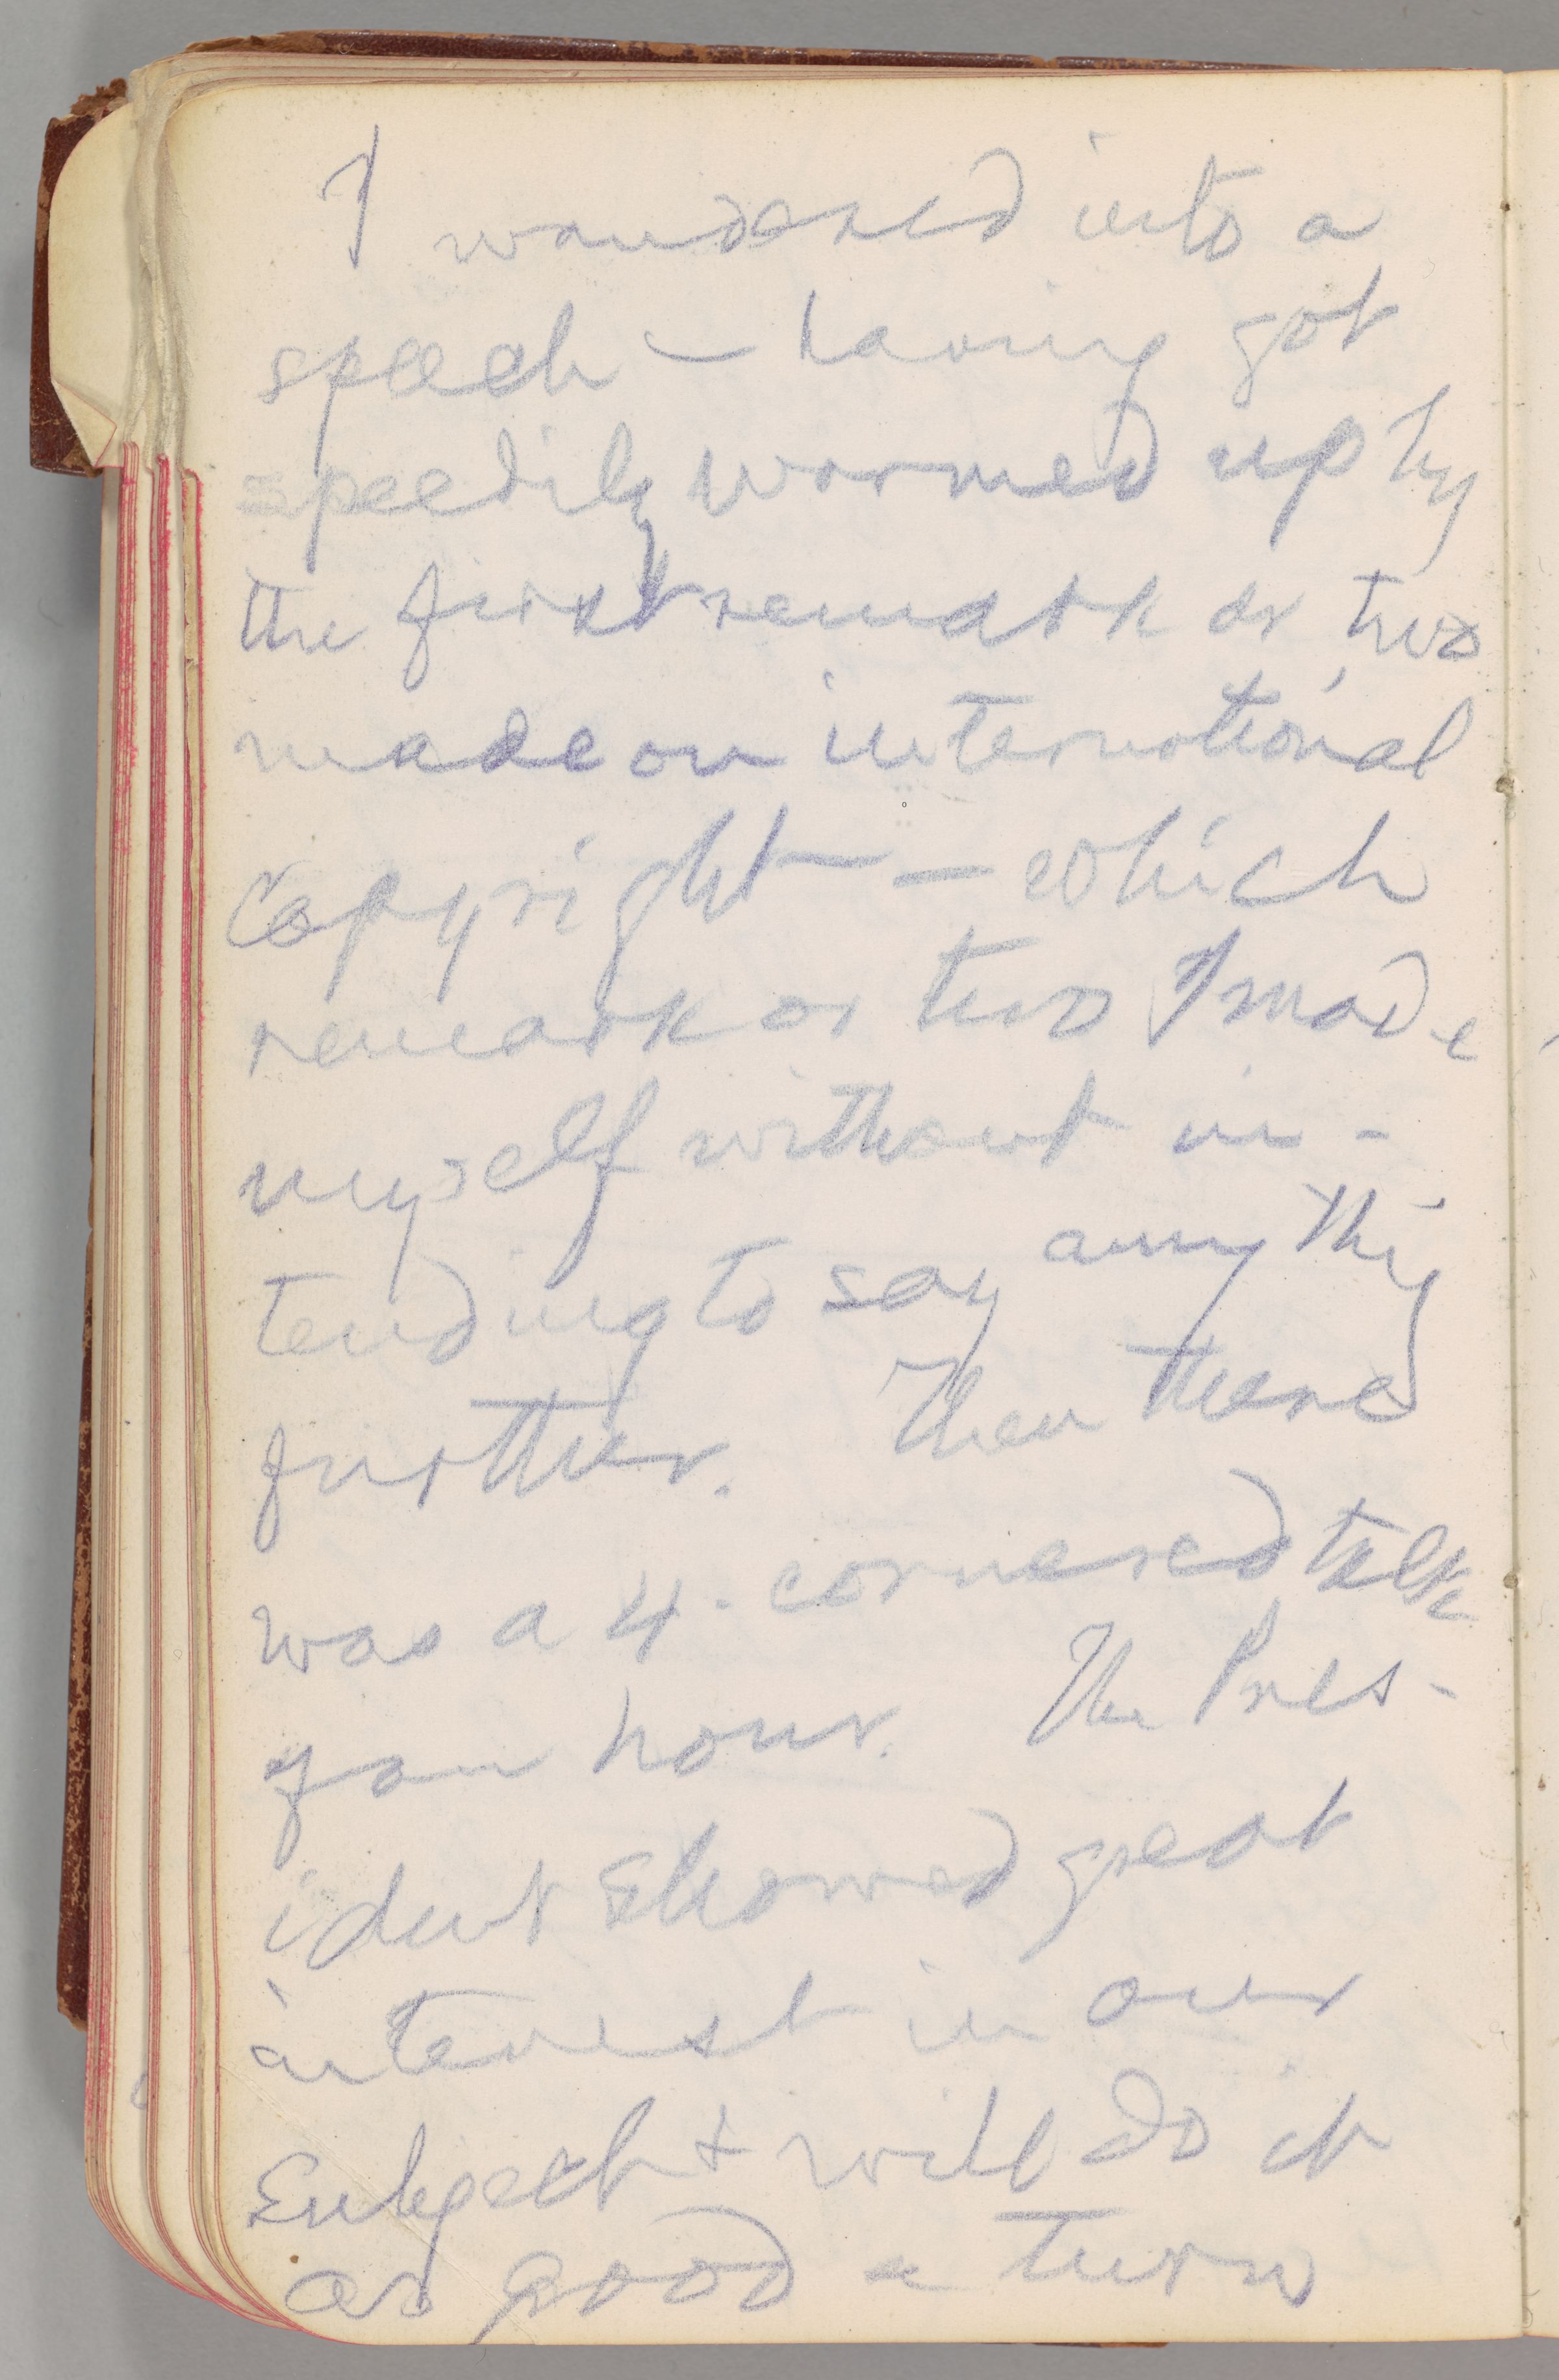 I wandered into a
speech — having got
speedily warmed up by
the first remark or two
made on international
Copyright — which
remark or two I made
myself without in-
tending to say anything
further. Then there
was a 4-cornered talk
of an hour. The Pres-
ident showed great
interest in our
Subject & will do it
as good a turn